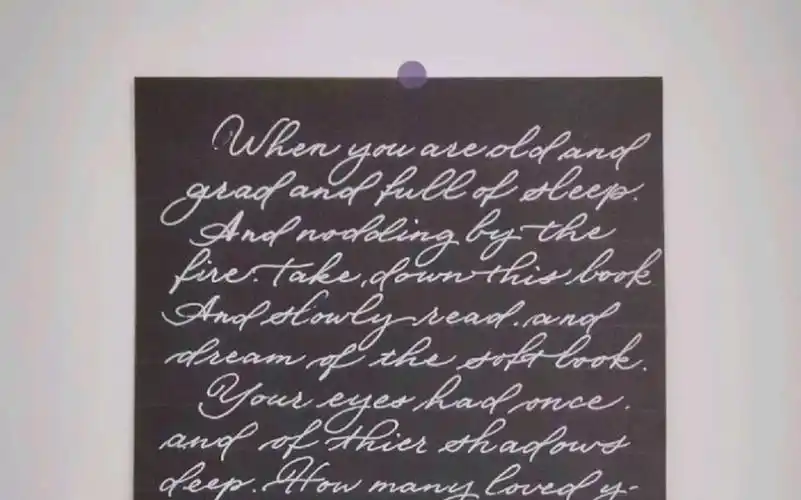 When you are old and
grad and full of sleep.
And nodding by the
fire. Take down this book
And slowly read. and
dream of the soft look.
Your eyes had once.
and of thier shadows
deep. How many loved y-